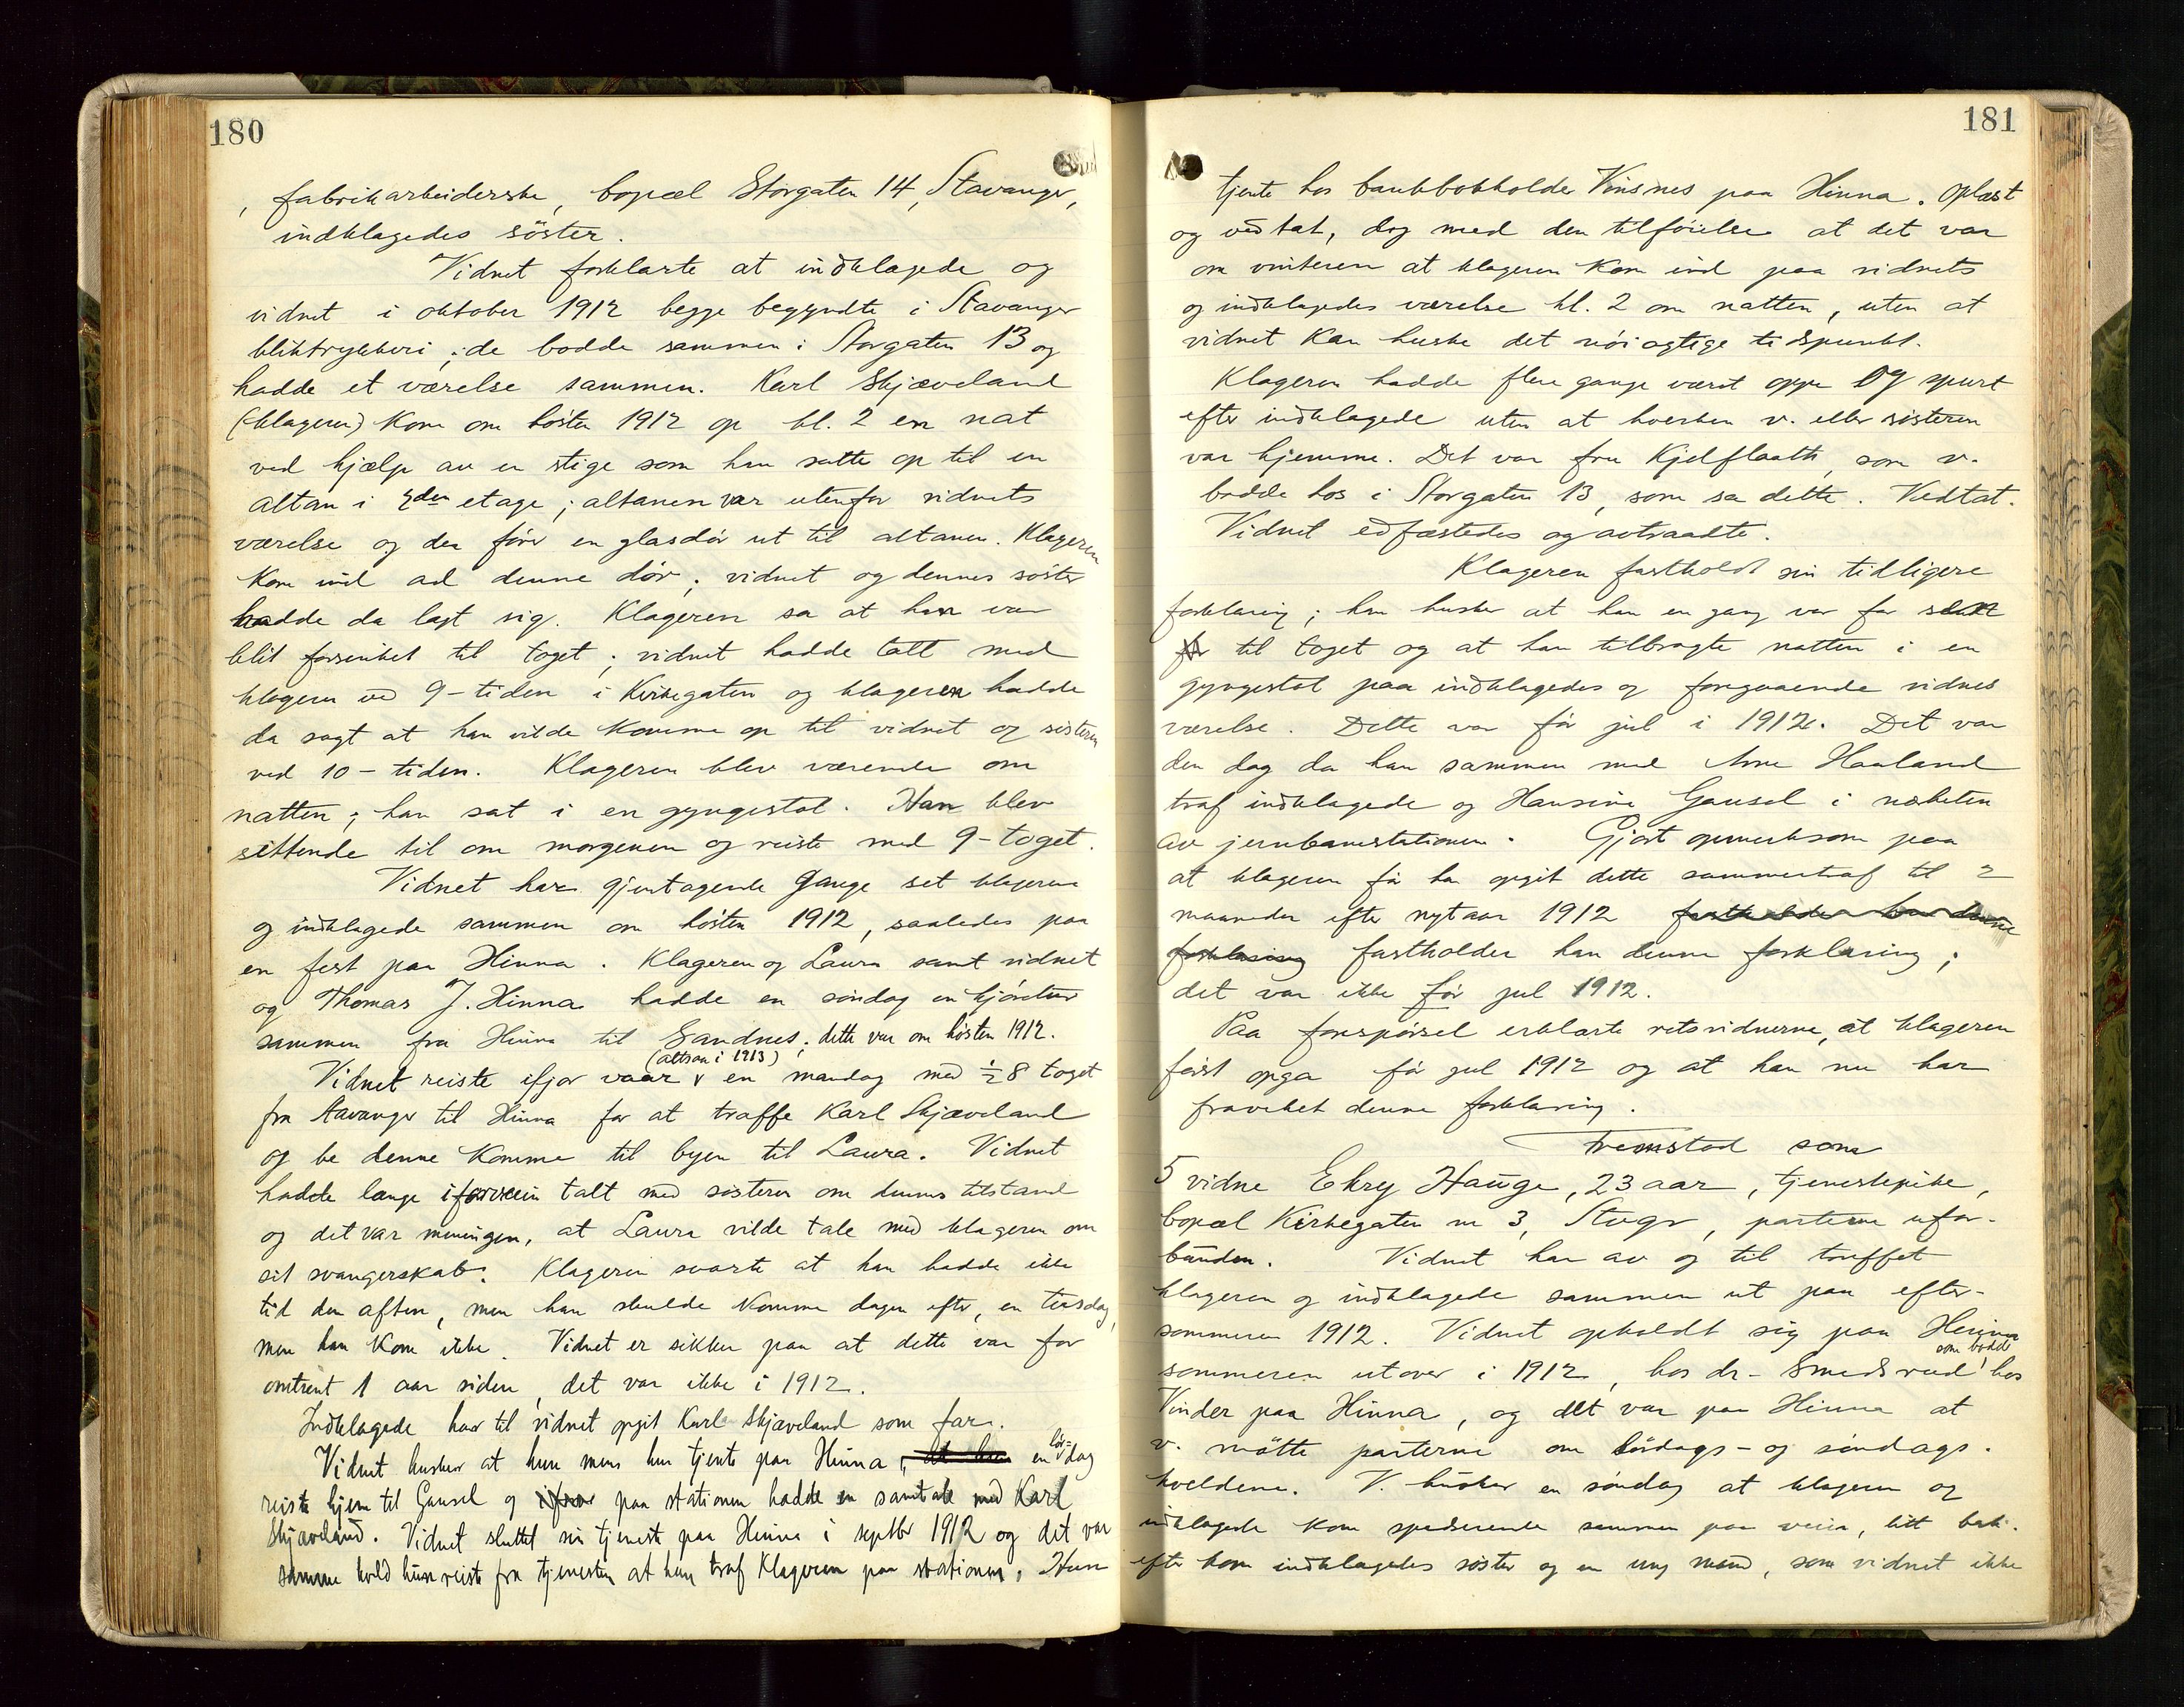 180
, fabrikarbeiderske, bopæl Storgaten 14, Stavanger,
indklagedes söster.
Vidnet forklarte at indklagede og
vidnet i oktober 1912 begge begyndte i Stavanger
bliktrykkeri; de bodde sammen i Storgaten 13 og
hadde et værelse sammen. Karl Skjæveland
(klageren) kom om høsten 1912 op kl. 2 en nat
ved hjælp av en stige som han satte op til en
altan i 2den etage; altanen var utenfor vidnets
værelse og der fører en glasdør ut til altanen. Klageren
kom ind ad denne dør; vidnet og dennes søster
hadde da lagt sig. Klageren sa at han var
blit forsinket til toget; vidnet hadde talt med
klageren ved 9-tiden i Kirkegaten og klageren hadde
da sagt at han vilde komme op til vidnet og søsteren
ved 10-tiden. Klageren blev værende om
natten; han sat i en gyngestol. Han blev
sittende til om morgenen og reiste med 9-toget.
Vidnet har gjentagende gange set klageren
og indklagede sammen om høsten 1912, saaledes paa
en fest paa Hinna. Klageren og Laura samt vidnet
og Thomas J. Hinna hadde en søndag en kjøretur
sammen fra Hinna til Sandnes; dette var om høsten 1912.
(altsaa i 1913)
Vidnet reiste ifjor vaar v en mandag med ½8 toget
fra Stavanger til Hinna for at træffe Karl Skjæveland
og be denne komme til byen til Laura. Vidnet
hadde længe iforveien talt med søsteren om dennes tilstand
og det var meningen, at Laura vilde tale med klageren om
sit svangerskab. Klageren svarte at han hadde ikke
tid den aften, men han skulde komme dagen efter, en tirsdag,
men han kom ikke. Vidnet er sikker paa at dette var for
omtrent 1 aar siden, det var ikke i 1912.
Indklagede har til vidnet opgit Karl Skjæveland som far.
Vidnet husker at hun mens hun tjente paa Hinna, at hun en lør-dag
reiste hjem til Gausel og paa stationen hadde en samtale med Karl
Skjæveland. Vidnet sluttet sin tjeneste paa Hinna i septbr 1912 og det var
samme kveld hun reiste fra tjenesten at hun traf klageren paa stationen. Hun
181
tjente hos bankbokholder Vinsnes paa Hinna. Oplæst
og vedtat, dog med den tilføielse at det var
om vinteren at klageren kom ind paa vidnets
og indklagedes værelse kl. 2 om natten, uten at
vidnet kan huske det nøiagtige tidspunkt.
Klageren hadde flere gange været oppe og spurt
efter indklagede uten at hverken v. eller søsteren
var hjemme. Det var fru Kjelflaath, som v.
bodde hos i Storgaten 13, som sa dette. Vedtat.
Vidnet edfæstedes og avtraadte.
Klageren fastholdt sin tidligere
forklaring; han husker at han en gang var for sent
til toget og at han tilbragte natten i en
gyngestol paa indklagedes og foregaaende vidnes
værelse. Dette var før jul i 1912. Det var
den dag da han sammen med Arne Haaland
traf indklagede og Hansine Gausel i nærheten
av jernbanestationen. Gjort opmerksom paa
at klageren før har opgit dette sammentræf til 2
maaneder efter nytaar 1912 fastholder han denne
forklaring fastholder han denne forklaring;
det var ikke før jul 1912.
Paa forespørsel erklærte retsvidnerne, at klageren
først opga før jul 1912 og at han nu har
fraveket denne forklaring.
Fremstod som
5 vidne Ekry Hauge, 23 aar, tjenestepike,
bopæl Kirkegaten nr 3, Stvgr, parterne ufor-
bunden. Vidnet har av og til truffet
klageren og indklagede sammen ut paa efter-
sommeren 1912. Vidnet opholdt sig paa Hinna
som bodde
sommeren utover i 1912, hos dr. Smedsrud hos
Vinder paa Hinna, og det var paa Hinna at
v. møtte parterne om lördags- og søndags-
kveldene. V. husker en søndag at klageren og
indklagede kom spaserende sammen paa veien, litt bak-
efter kom indklagedes søster og en ung mand, som vidnet ikke